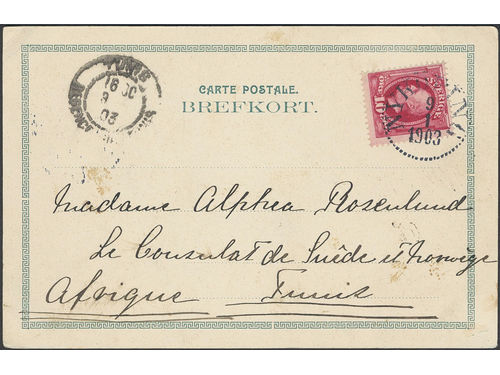 CARTE POSTALE.
BREFKORT.
SVERIGE
9
1
1903
TUNIS
Madame Alphea Rosenlund
Le Consulat de Suède et Norwège
Afrique Tunis